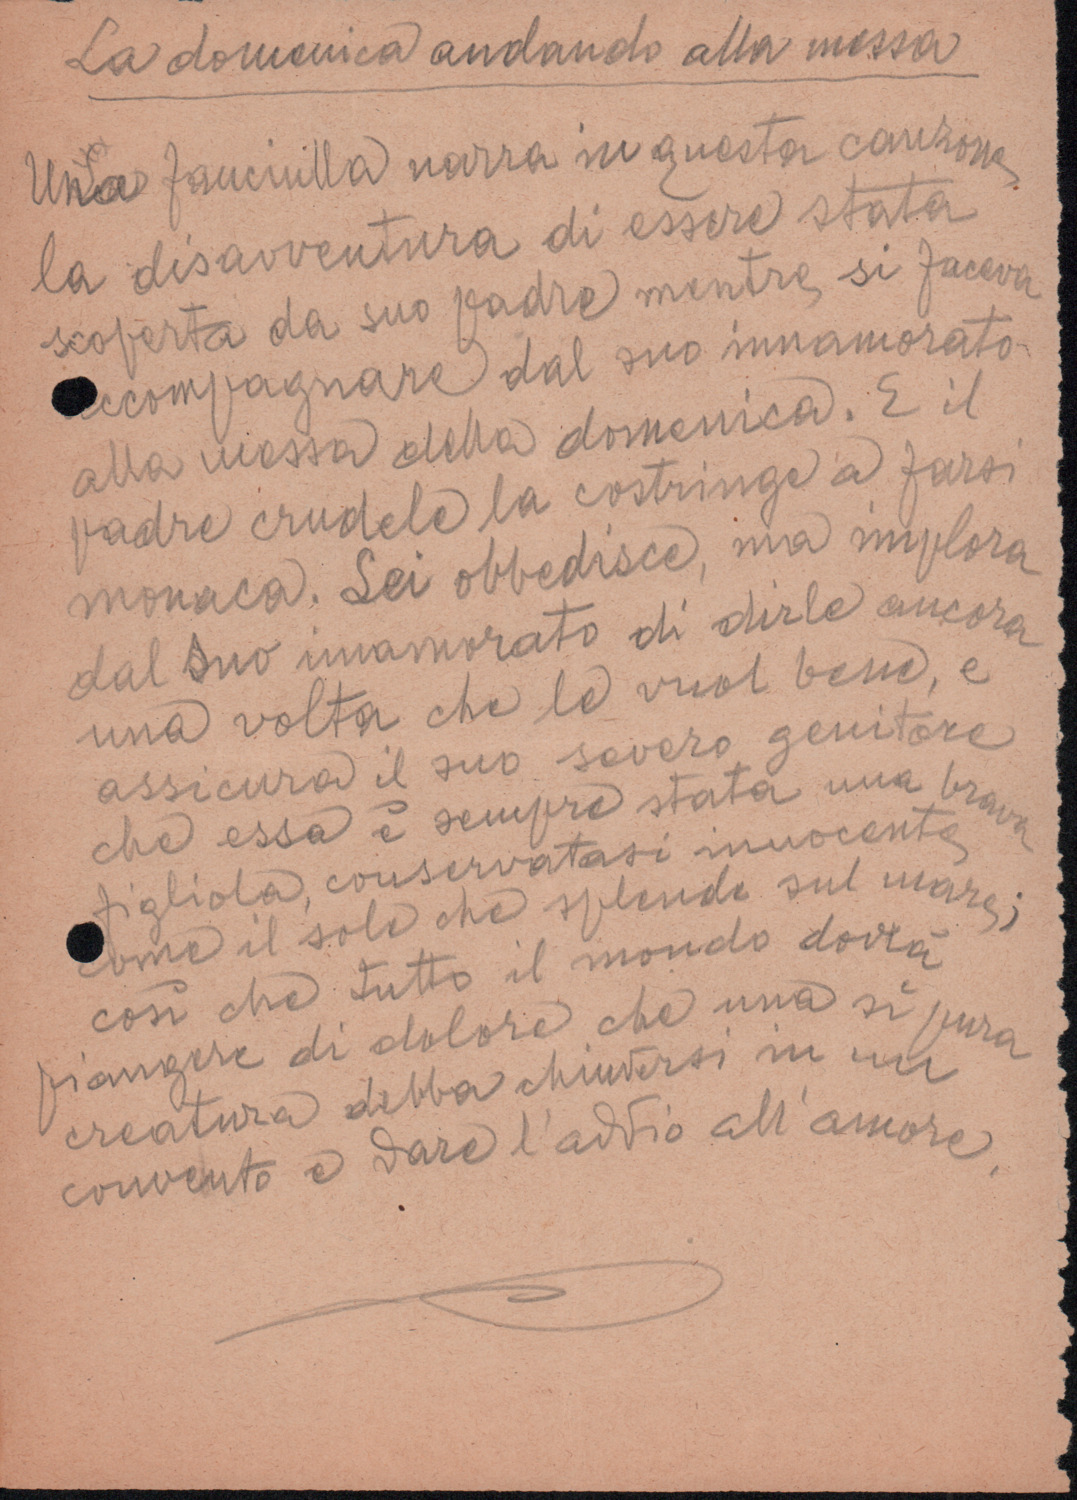 La domenica andando alla messa
Una fanciulla narra in questa canzone,
la disavventura di essere stata
scoperta da suo padre mentre si faceva
accompagnare dal suo innamorato
alla messa della domenica. E il
padre crudele la costringe a farsi
monaca. Lei obbedisce, ma implora
dal suo innamorato di dirle ancora
una volta che le vuol bene, e
assicura il suo severo genitore
che essa è sempre stata una brava
figliola, conservatasi innocente
come il sole che splende sul mare;
così che tutto il mondo dovrà
piangere di dolore che una sì pura
creatura debba chiudersi in un
convento e dare l'addio all'amore.